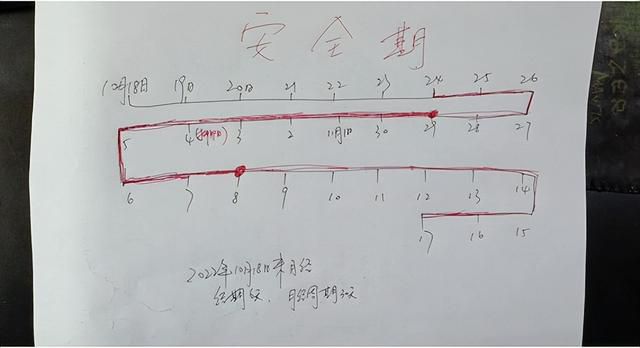 安全期
10月18日 19日 20日 21 22 23 24 25 26
5 4(排卵日) 3 2 11月1日 30 29 28 27
6 7 8 9 10 11 12 13 14
17 16 15
2022年10月18日来月经
经期6天、月经周期30天